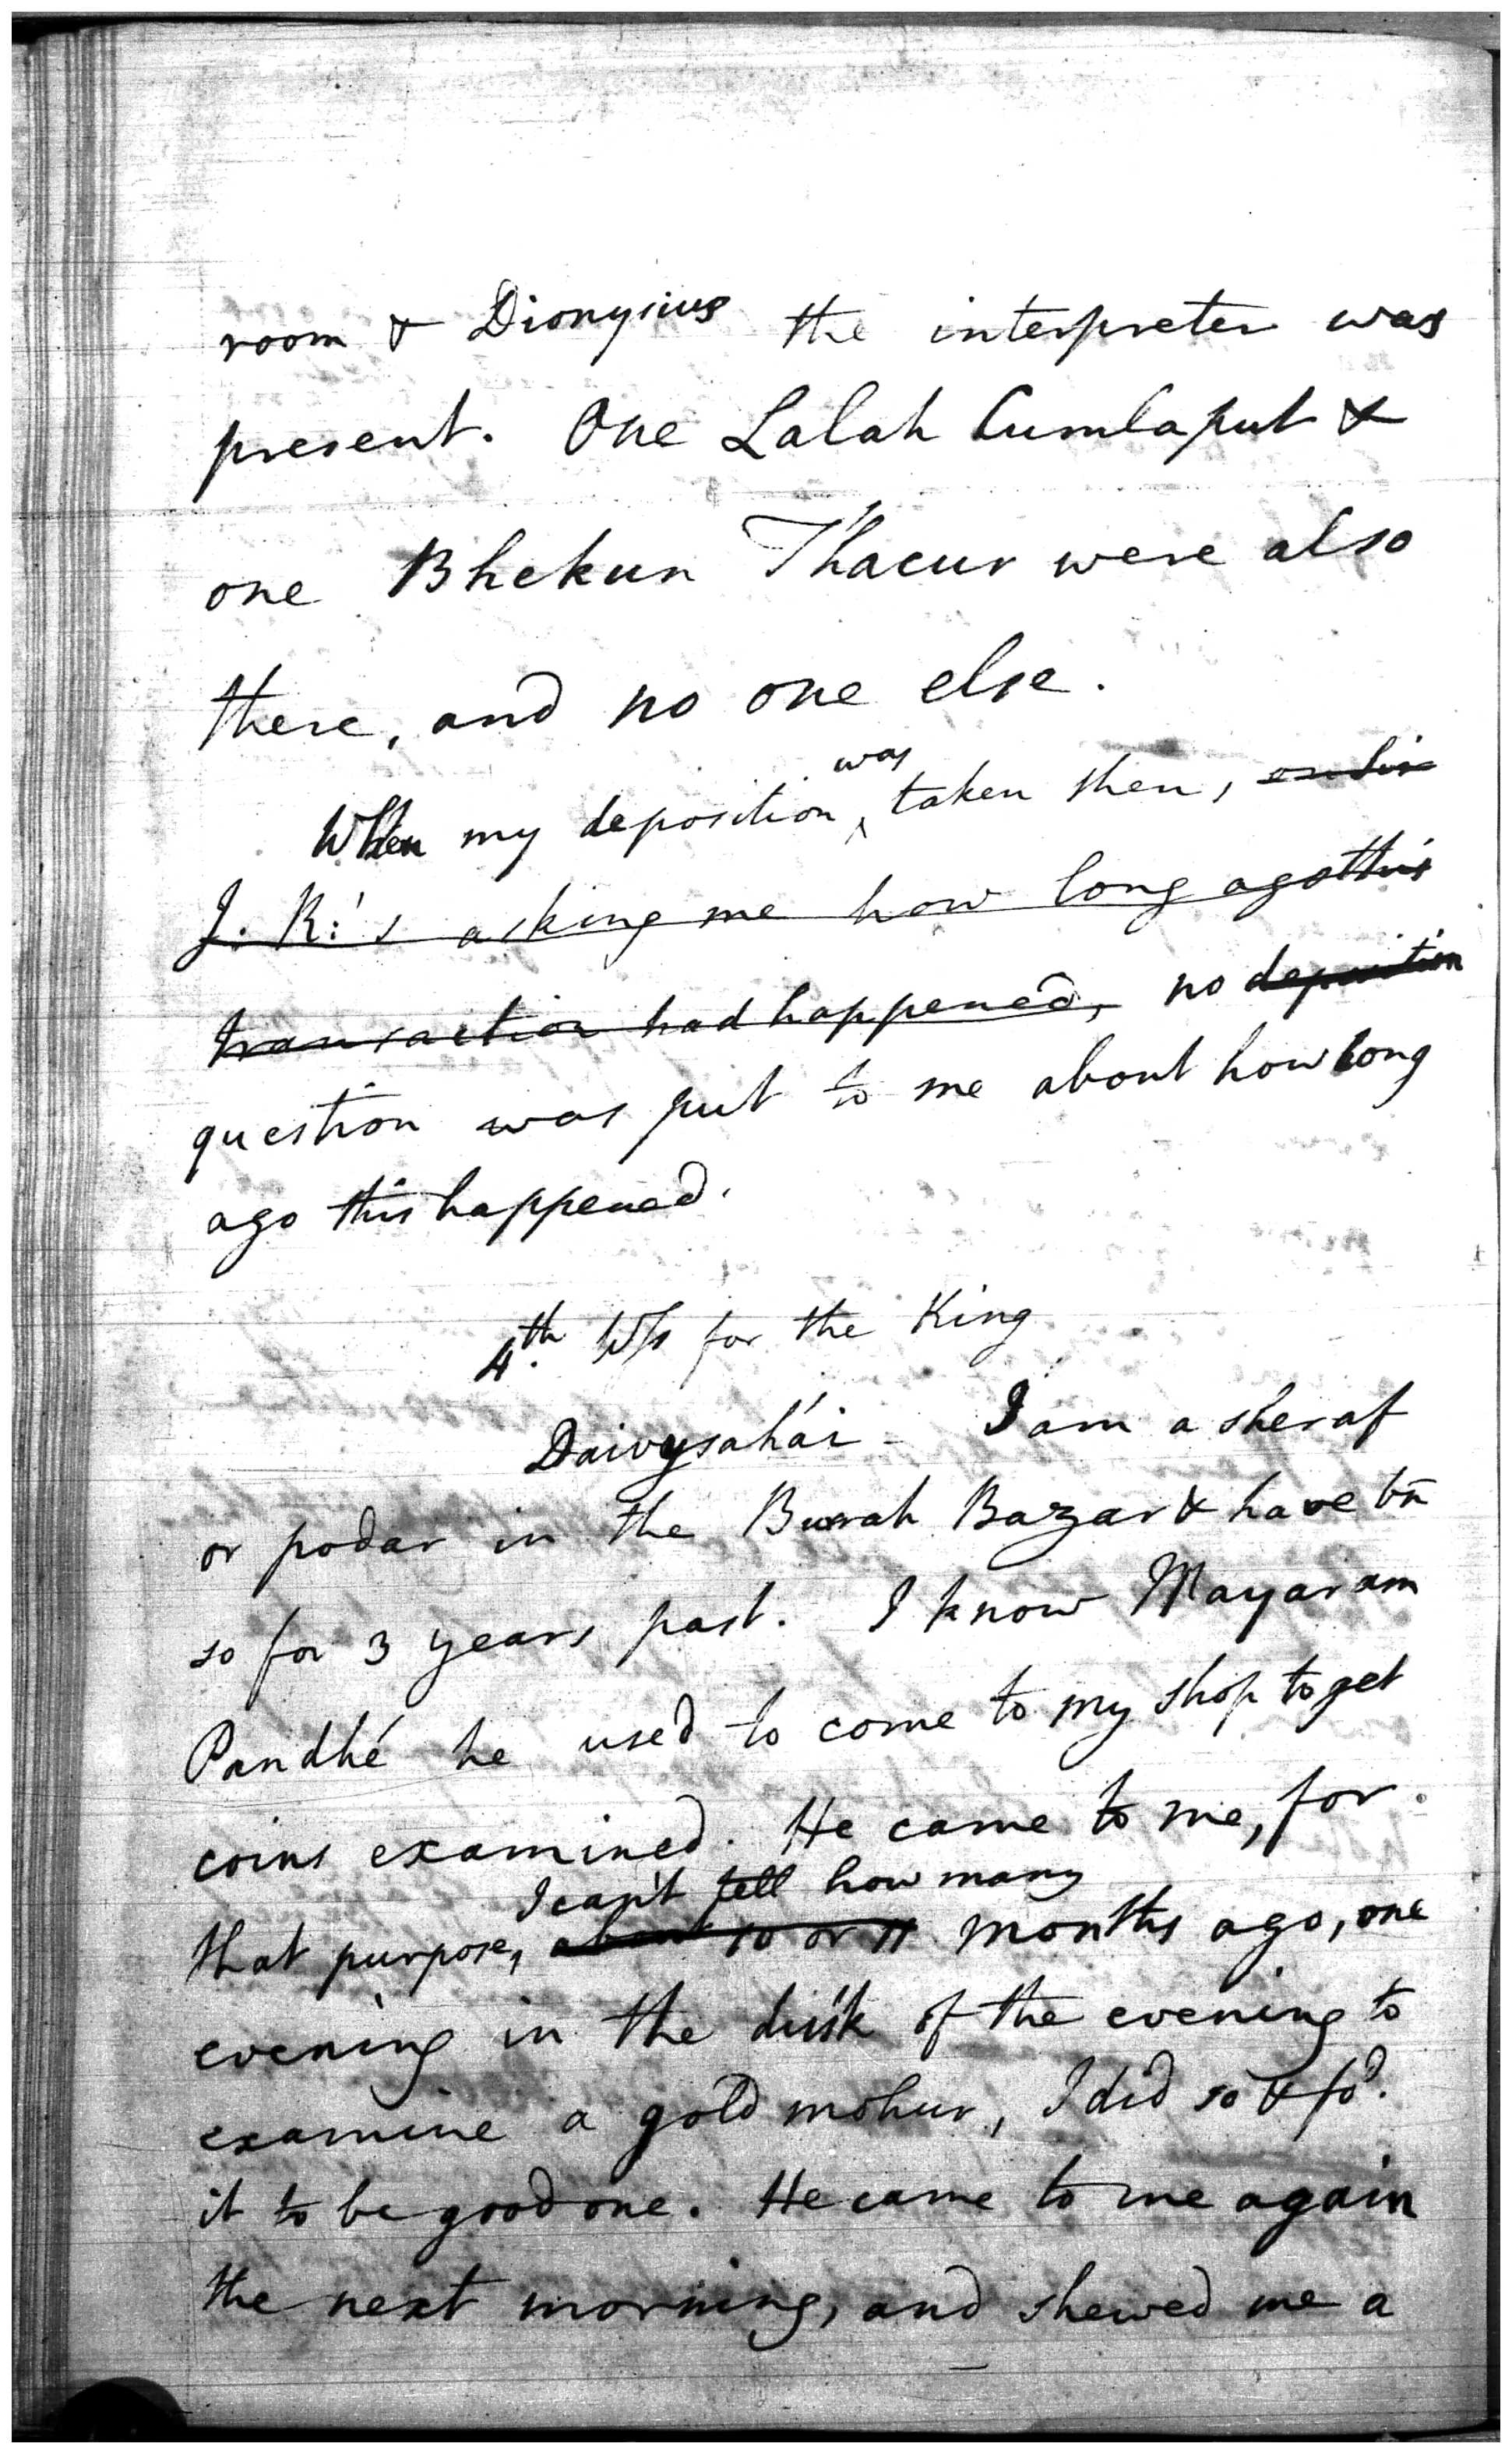 room & Dionysius the interpreter was
present. One Lalah Cumlaput &
one Bhekun Thacur were also
there, and no one else.
was
When my deposition ^ taken then, on his
J. R:'s asking me how long ago this
transaction had happened, no deposition
question was put to me about how long
ago this happened.
4th. W/s for the King
Daivysahái - I am a sheraf
or podar in the Burrah Bazar & have bn
so for 3 years past. I know Mayaram
Pandhé he used to come to my shop to get
coins examined. He came to me, for
I can't tell how many
that purpose, about 10 or 11 months ago, one
evening in the dusk of the evening to
examine a gold mohur, I did so & fd.
it to be good one. He came to me again
the next morning, and shewed me a